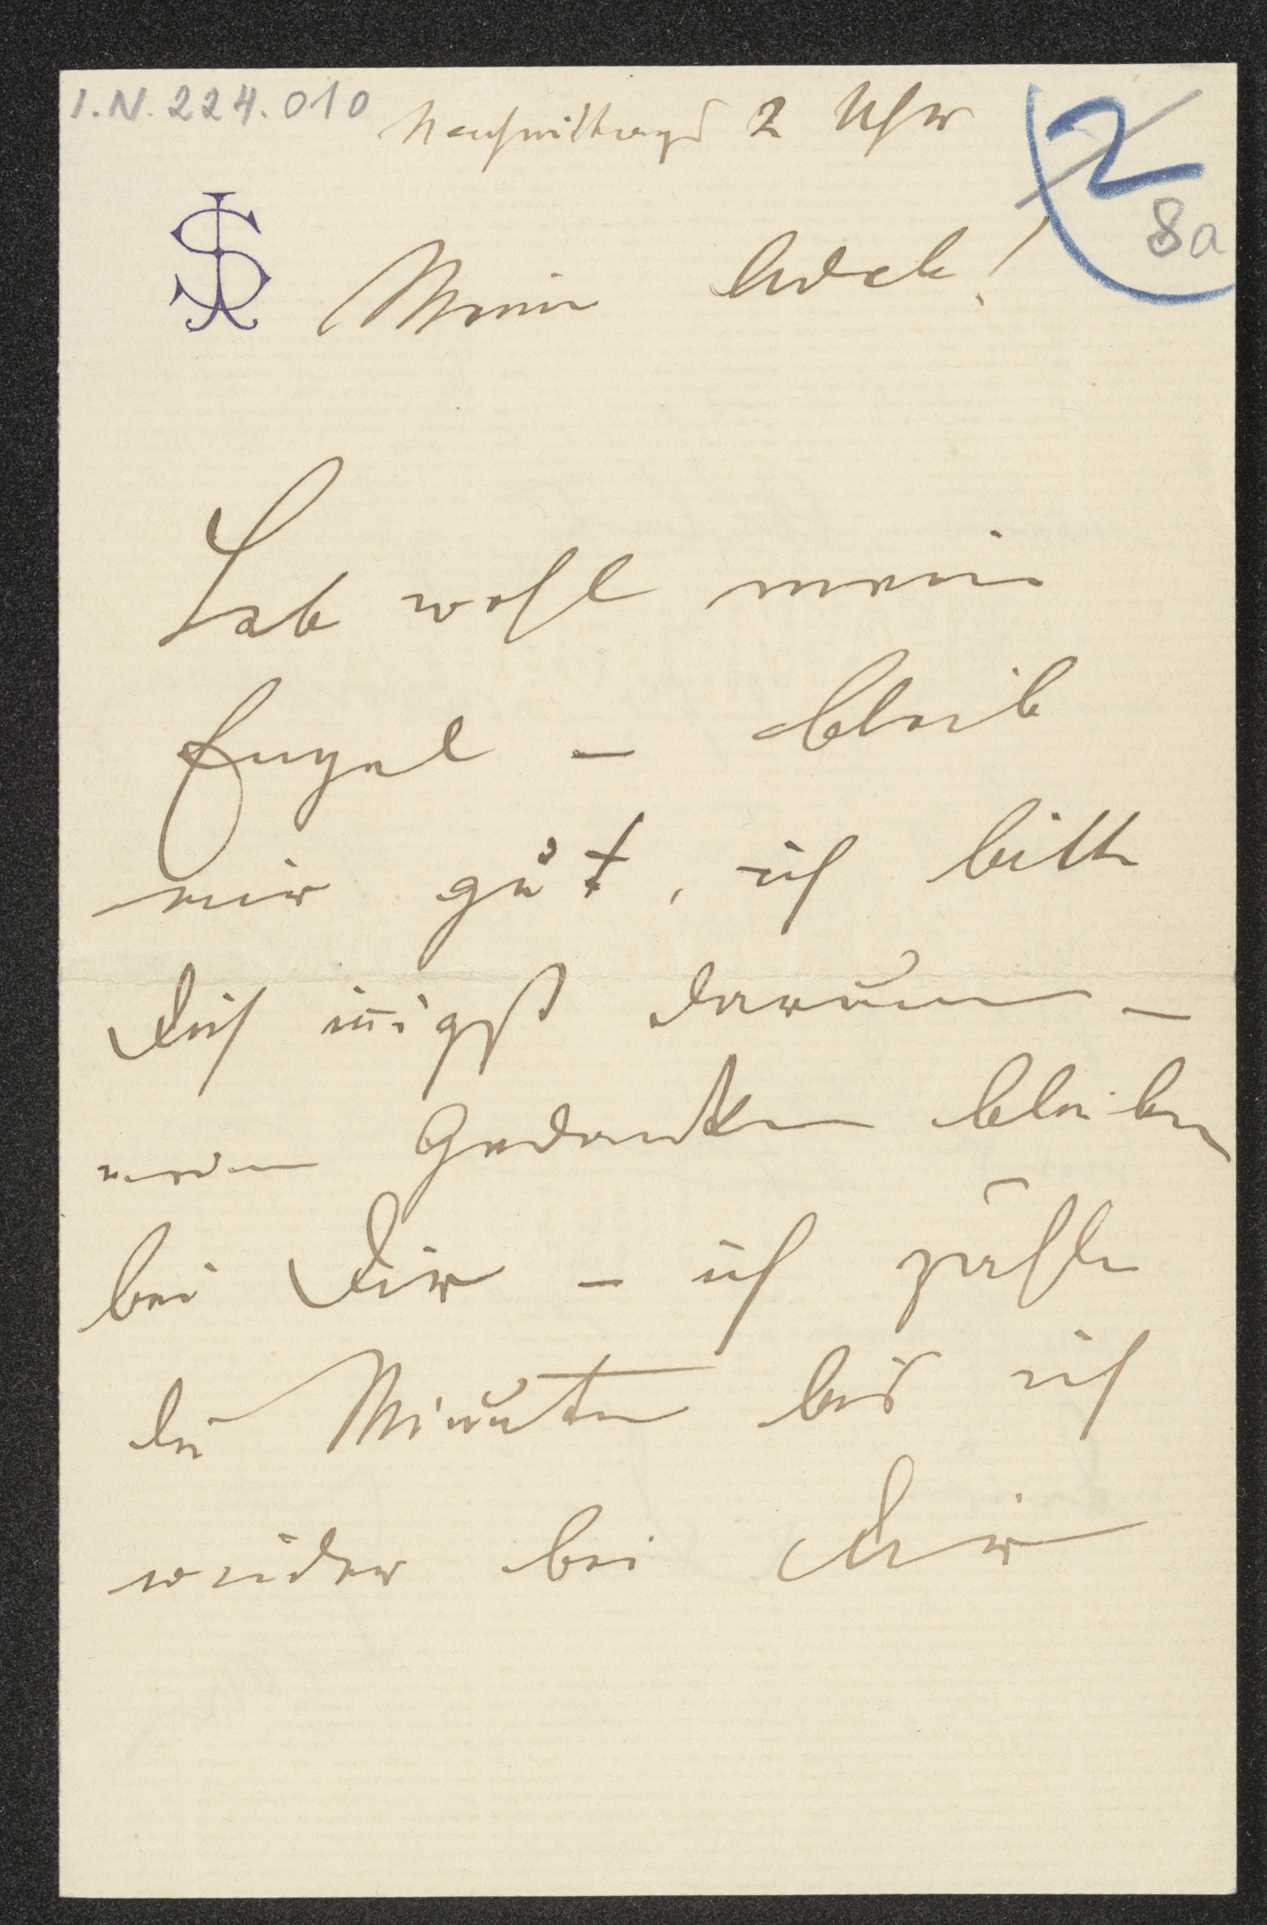 I.N. 224.010
Nachmittags 2 Uhr
2
8a
JS
Meine Adele!
Leb wohl mein
Engel – bleib
mir gut, ich bitte
Dich in̅igst darum –
meine Gedanken bleiben
bei Dir – ich zähle
die Minuten bis ich
wieder bei Dir